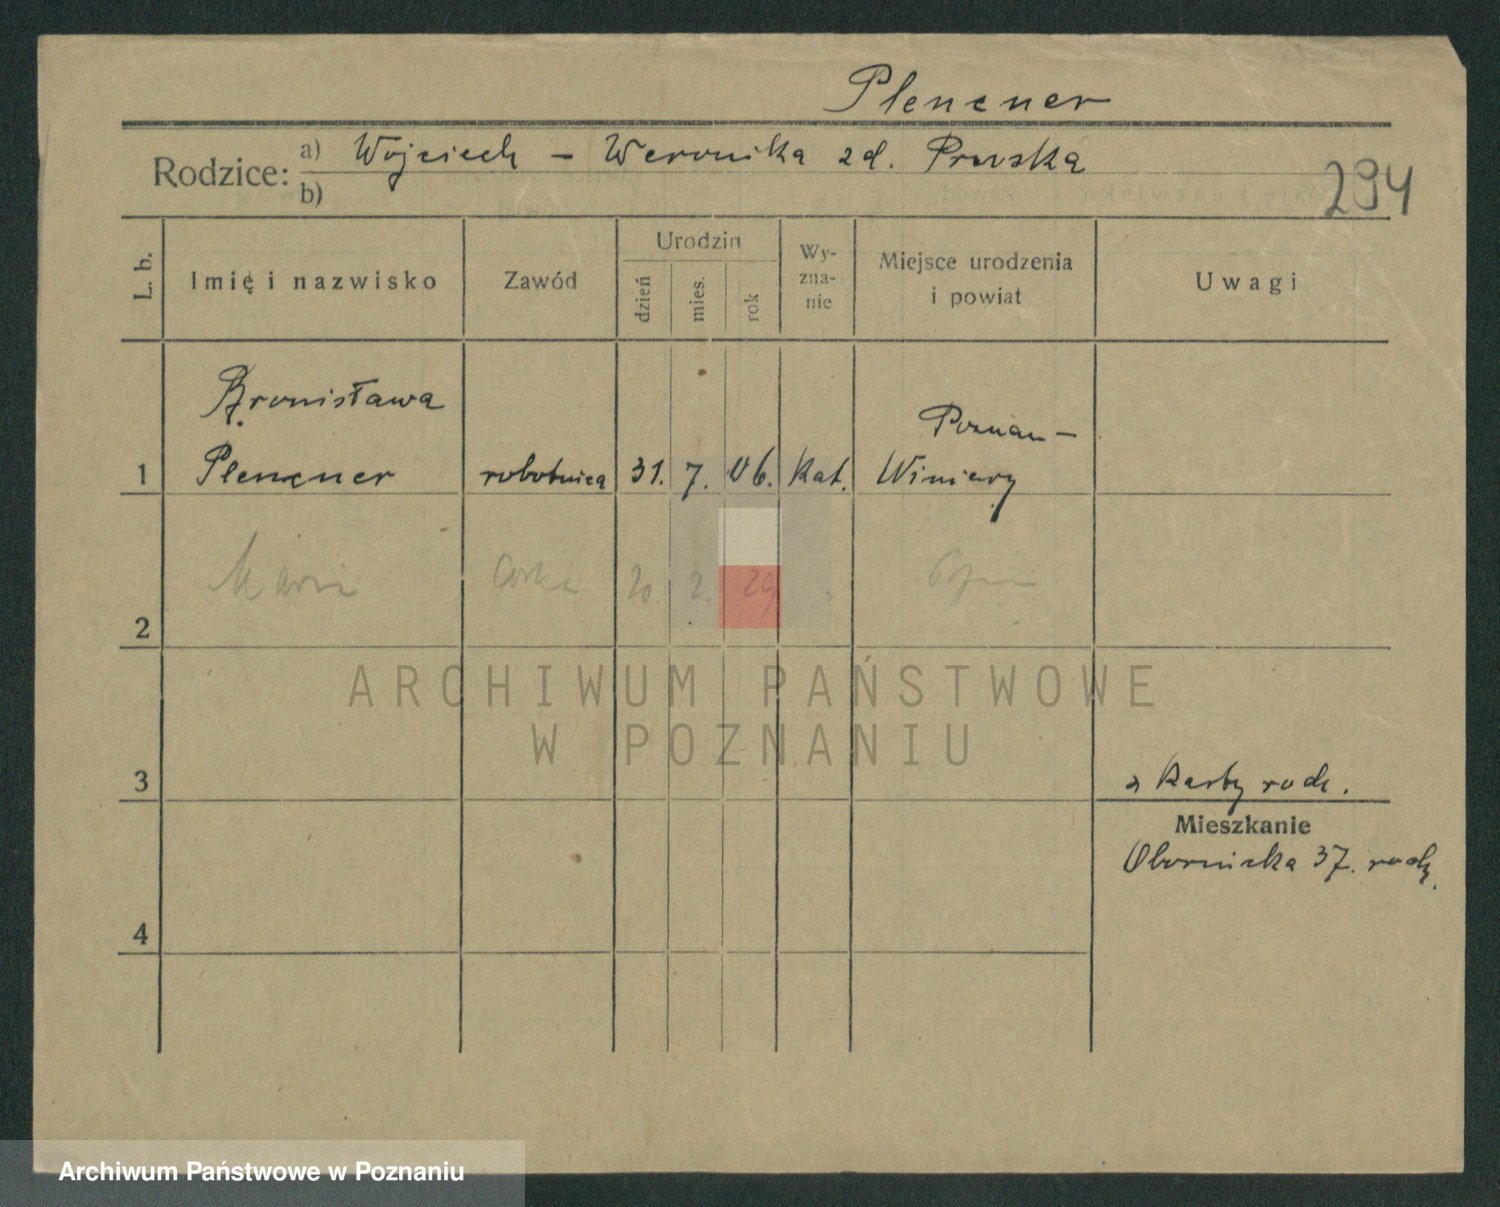 Plenzner
Rodzice: a) Wojciech – Weronika zd. Pruska
b)
294
L. b.
Imię i nazwisko
Zawód
Urodzin
dzień
mies.
rok
Wy-
zna-
nie
Miejsce urodzenia
i powiat
Uwagi
Bronisława
Poznan –
1 Plenzner robotnica 31. 7. 06. Kat. Winiary
Maria 20. 2. 29
2
ARCHIWUM PAŃSTWOWE
W POZNANIU
3
z Karty rodz.
Mieszkanie
Obornicka 37. rodz.
4
Archiwum Państwowe w Poznaniu